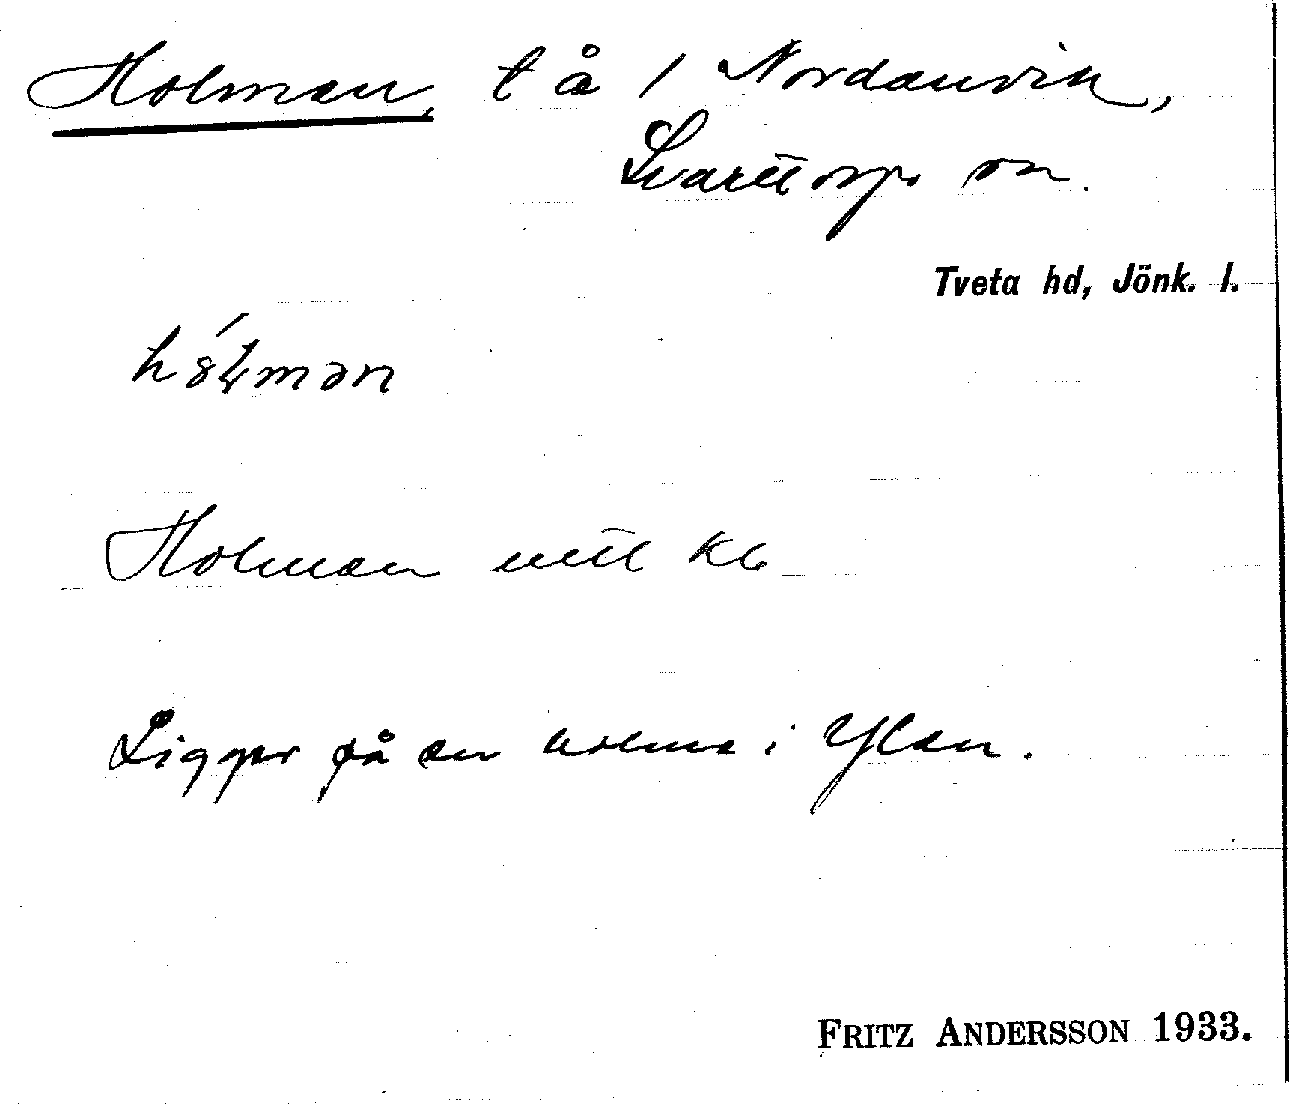 Holman, t å / Nordanvik,
Svarttorps sn.
Tveta hd, Jönk. l.
Holman uttl kb
Ligger på en holme i Ylen.
FRITZ ANDERSSON 1933.